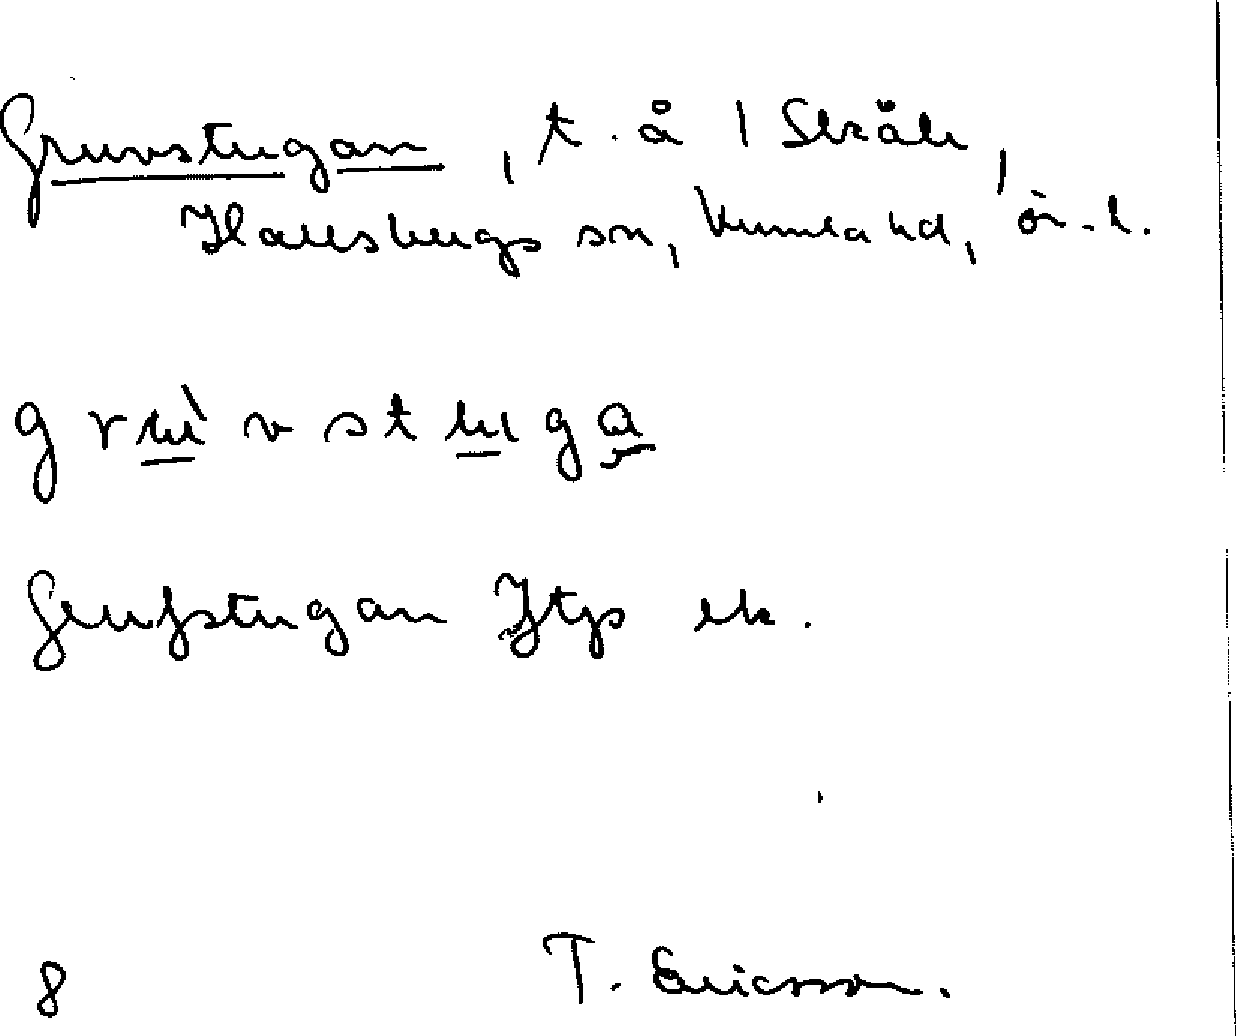 Gruvstugan, t. å 1 Skråle,
Hallsbergs sn, Kumla hd, ör. l.
grùvstuga
Grufstugan Jtp ek.
8 T. Ericsson.